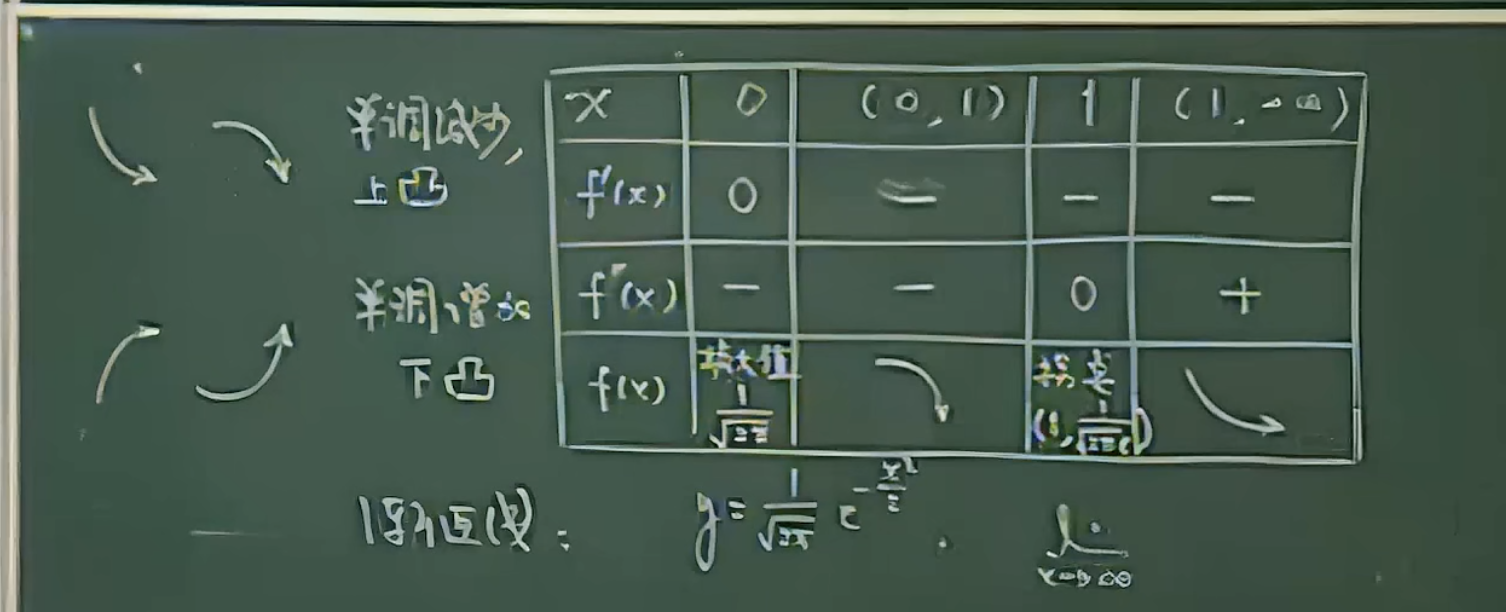 单调减少,
上凸
单调增加
下凸
x 0 (0, 1) 1 (1, +∞)
f'(x) 0 — — —
f''(x) — — 0 +
f(x) 极大值 1/√2π 拐点 (1, 1/√2πe)
渐近线: y = 1/√2π e^{-x²/2} . lim x→∞